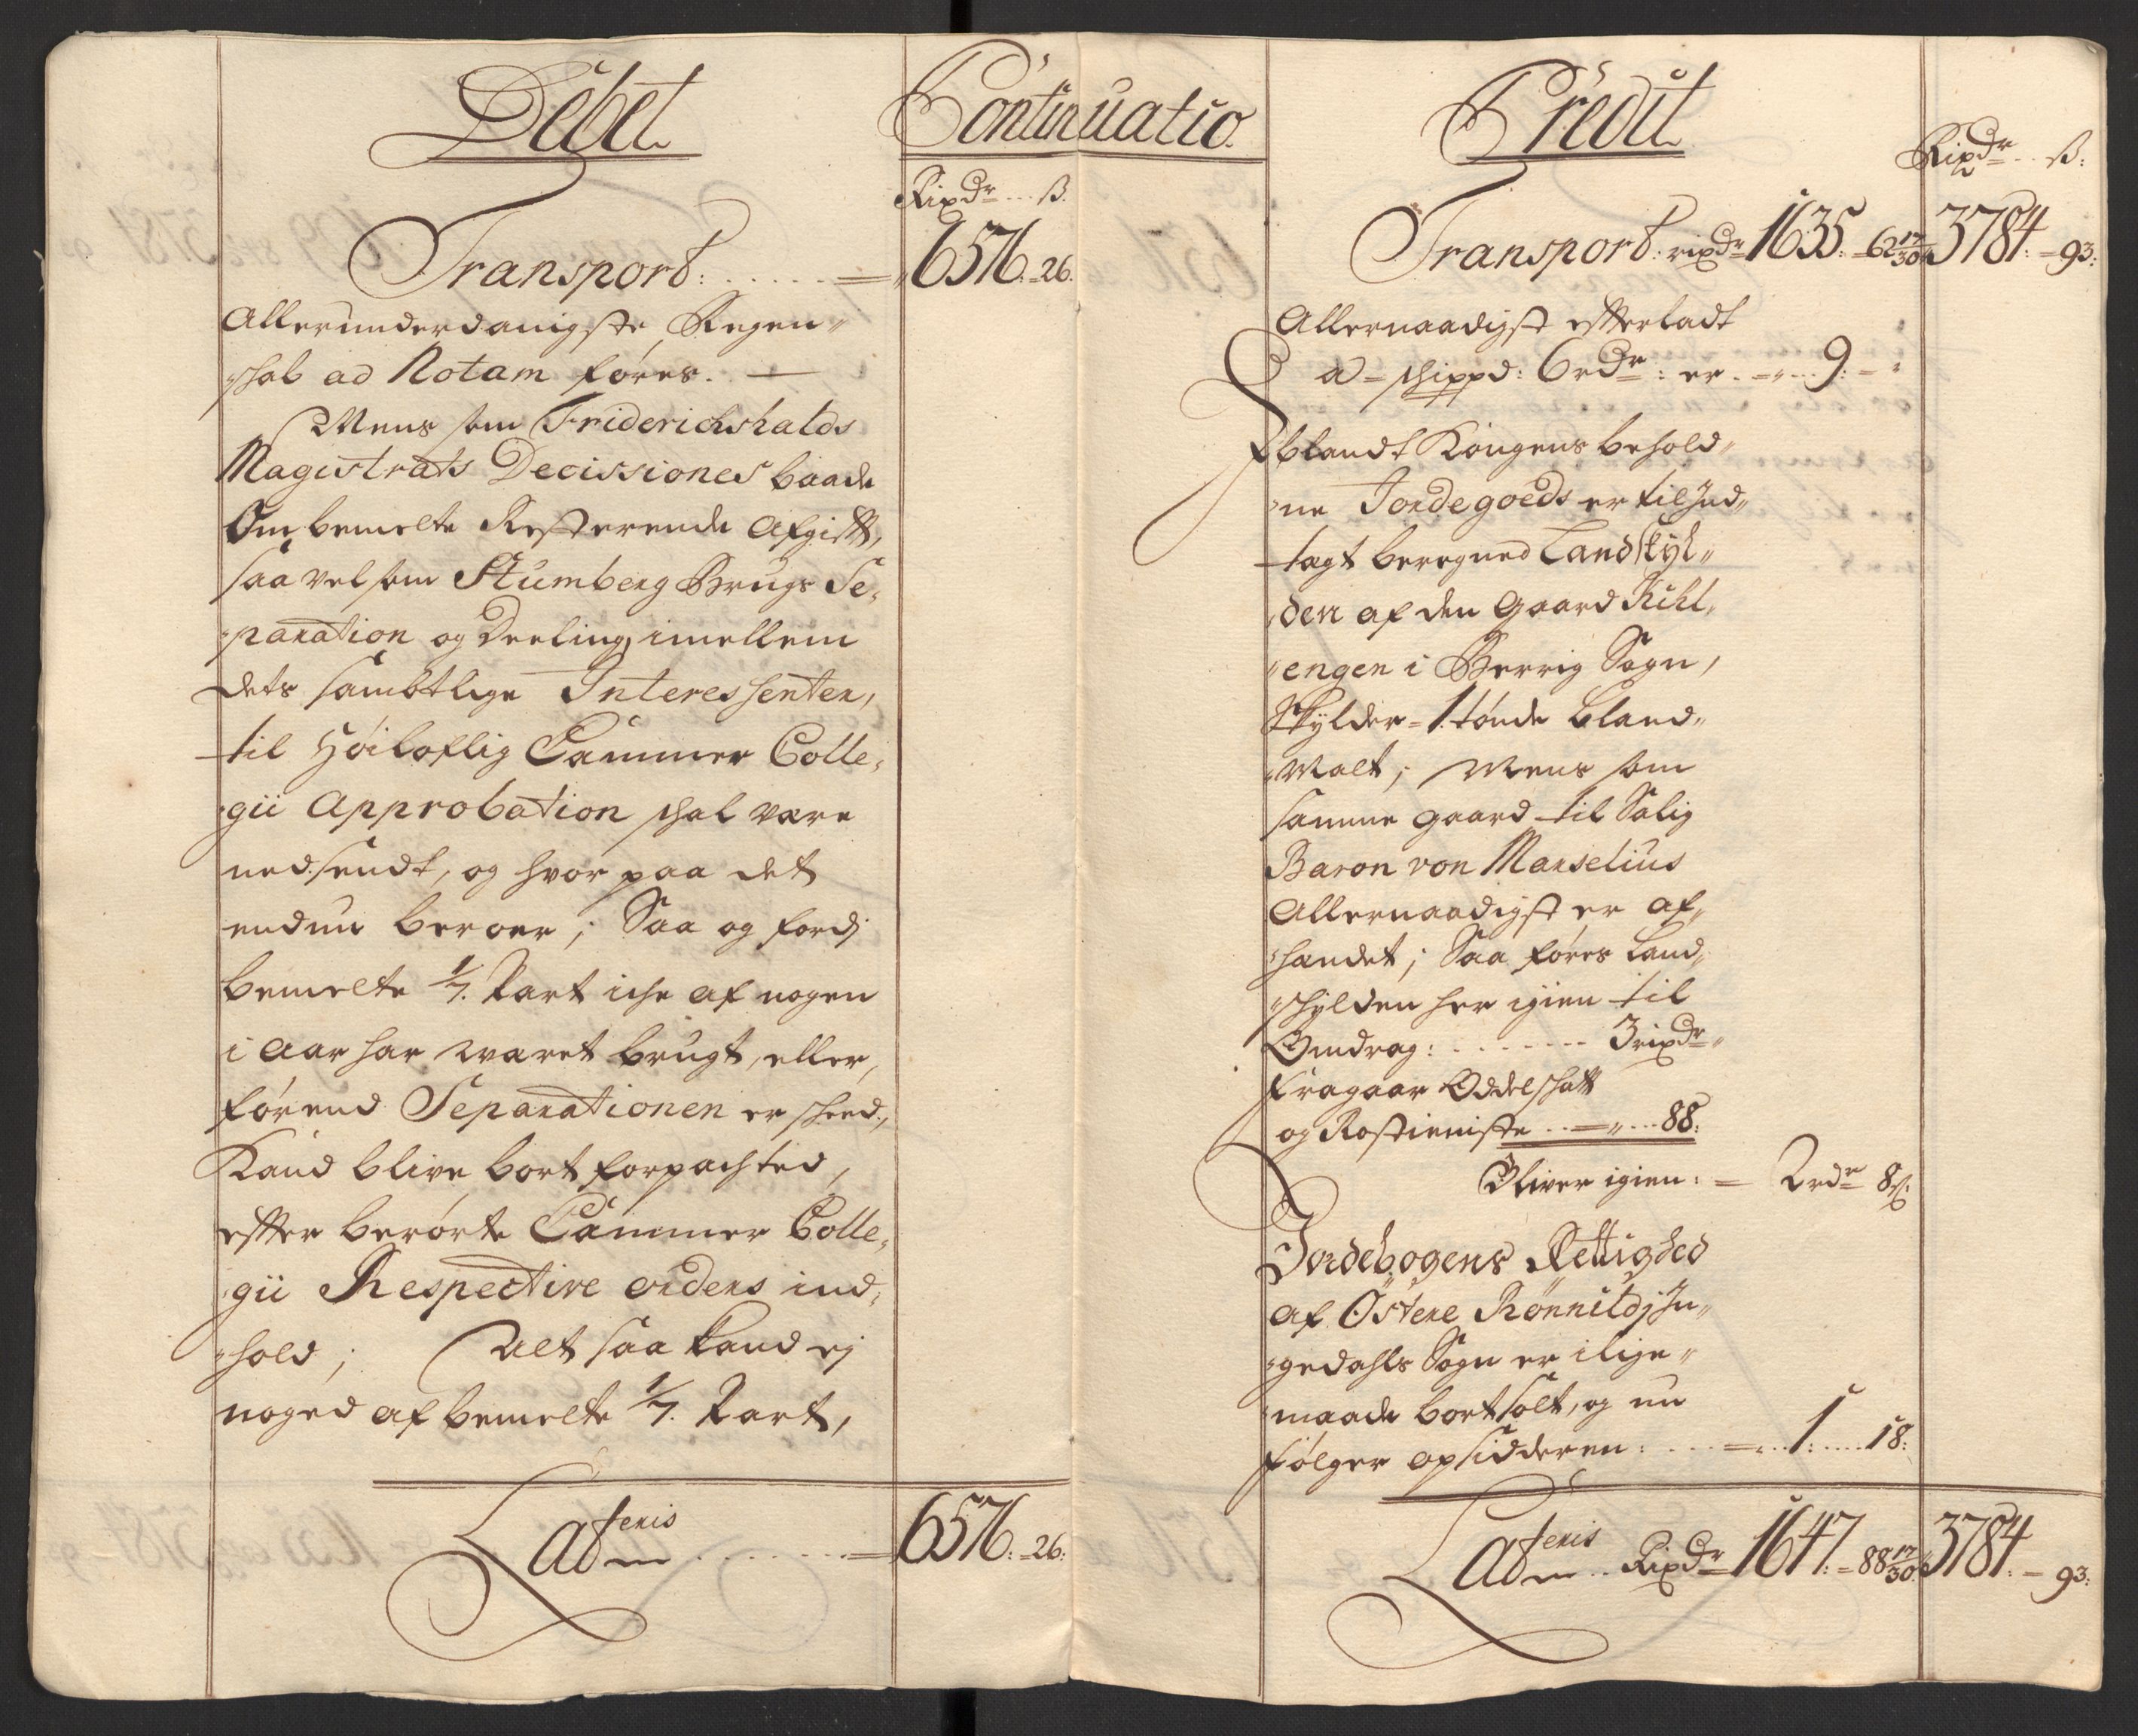 Debet
Continuatio
Rixdr ... ß.
Transport: . . . . . = 6576. - 26.
Allerunderdanigste Regen-
schab ad Notam føres. —
Mens som Friderichshalds
Magistrats Decissiones baade
Om bemelte Resterende Afgifft,
saa vel som Stumberg Brugs Se-
paration og Deeling imellem
dets sambtlige Interessenter,
til Høiloflig Cammer Colle-
gii Approbation schal være
nedsendt, og hvor paa det
endnu beroer; Saa og fordj
bemelte 1/7. Part iche af nogen
i Aar har været brugt, eller,
førend Separationen er scheed,
Kand blive bortforpachted,
effter berørte Cammer Colle-
gii Respective orders ind-
hold; Alt saa kand ej
noged af bemelte 1/7. Part,
Lateris . . . . . . . = 6576: - 26:
Credit
Rixdr .. ß:
Transport: rixdr 1635: - 62 17/30 3784: - 93:
Allernaadigst efterladt
a - schippd: 6 rdr: er . = .. 9: -
Iblandt Kongens behold-
ne Jordegoeds er til Ind-
tægt beregned Landskyl-
den af den Gaard Kihl-
engen i Berrig Sogn,
Skylder - 1. tønde bland-
Malt; Mens som
samme gaard til Salig
Baron von Marselius
Allernaadigst er af-
handet; Saa føres Land-
schylden her igien til
Omdrag: . . . . . . . . 3 rixdr
Fragaar Oddelschatt
og Rostieniste .. = .. 88:
Bliver igien: = 2 rdr 8 ß:
Jordebogens Rettighed
af Østere Rønnild j In-
gedahls Sogn er i lige-
maade bortsolt, og nu
følger opsidderen: . . . = .. 1: .... 18:
Lateris .. Rixdr 1647: - 88 17/30 3784: - 93: